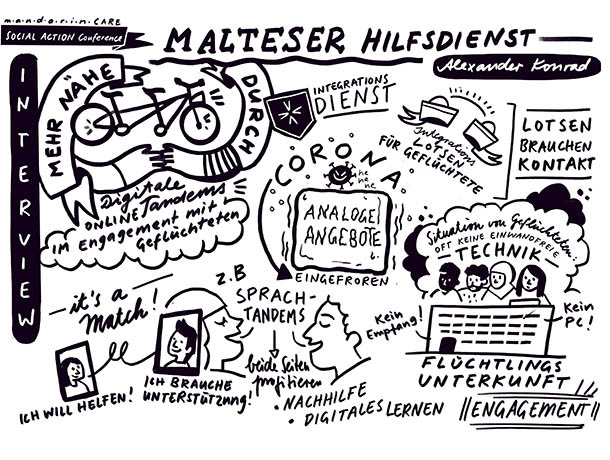 m·a·n·d·a·r·i·n·CARE
SOCIAL ACTION Conference
MALTESER HILFSDIENST
Alexander Konrad
INTERVIEW
MEHR NÄHE
DURCH
Digitale
ONLINE Tandems
IM Engagement mit
Geflüchteten
INTEGRATIONS
DIENST
CORONA
he
he he
ANALOGE
ANGEBOTE
EINGEFROREN
Integrations
LOTSEN
FÜR GEFLÜCHTETE
LOTSEN
BRAUCHEN
KONTAKT
Situation von Geflüchteten..
OFT KEINE EINWANDFREIE
TECHNIK
Kein
Empfang!
Kein
PC!
FLÜCHTLINGS
UNTERKUNFT
ENGAGEMENT
it's a
Match!
ICH WILL HELFEN!
ICH BRAUCHE
UNTERSTÜTZUNG!
z.B
SPRACH-
TANDEMS
beide Seiten
profitieren
• NACHHILFE
• DIGITALES LERNEN